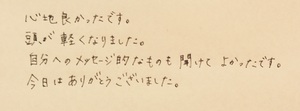 心地良かったです。
頭が軽くなりました。
自分へのメッセージ的なものも聞けてよかったです。
今日はありがとうございました。